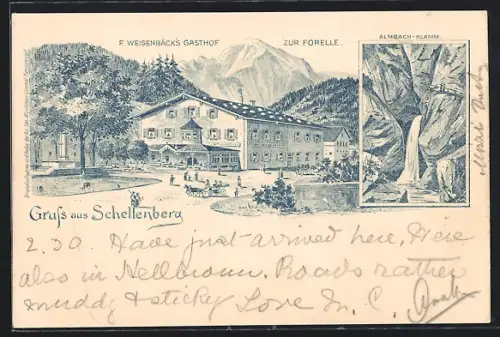 F. WEISENBÄCK'S GASTHOF ZUR FORELLE.
ALMBACH-KLAMM.
Gruß aus Schellenberg
2.30 Have just arrived here, Were
also in Hellbrunn. Roads rather
muddy & sticky Love